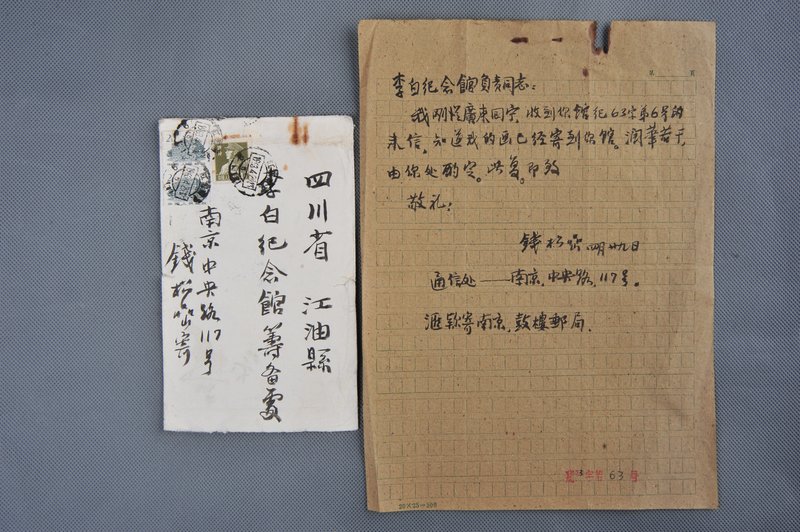 四川省 江油縣
李白纪念館筹备處
南京中央路117号
錢松喦寄
第 頁
李白纪念館負责同志:
我刚從廣東回宁,收到你館纪63字第6号的
来信,知道我的画已经寄到你館。润筆若干,
由你处酌定。此复。即致
敬礼!
錢松喦 四月廿九日
通信处——南京,中央路,117号。
滙欵寄南京,鼓樓郵局。
字第63号
20×25=500